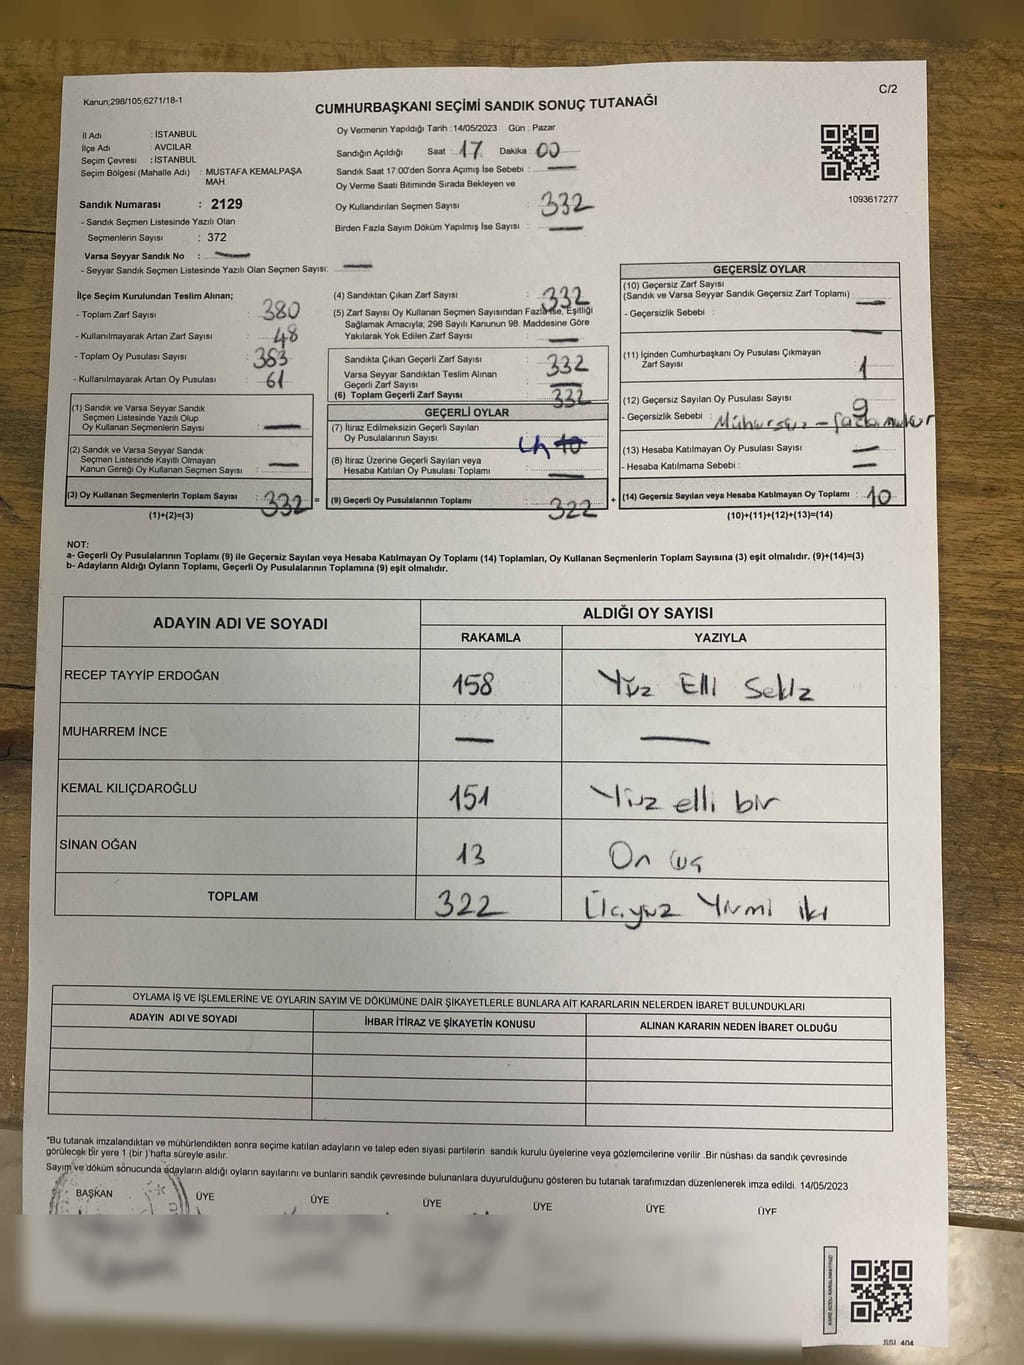 Kanun;298/105,6271/18-1
C/2
CUMHURBAŞKANI SEÇİMİ SANDIK SONUÇ TUTANAĞI
İl Adı : İSTANBUL
İlçe Adı : AVCILAR
Seçim Çevresi : İSTANBUL
Seçim Bölgesi (Mahalle Adı) : MUSTAFA KEMALPAŞA
MAH.
Sandık Numarası : 2129
- Sandık Seçmen Listesinde Yazılı Olan
Seçmenlerin Sayısı : 372
Varsa Seyyar Sandık No : —
- Seyyar Sandık Seçmen Listesinde Yazılı Olan Seçmen Sayısı: —
Oy Vermenin Yapıldığı Tarih : 14/05/2023 Gün : Pazar
Sandığın Açıldığı Saat : 17 Dakika : 00
Sandık Saat 17:00'den Sonra Açımış İse Sebebi : —
Oy Verme Saati Bitiminde Sırada Bekleyen ve
Oy Kullandırılan Seçmen Sayısı : 332
Birden Fazla Sayım Döküm Yapılmış İse Sayısı : —
1093617277
İlçe Seçim Kurulundan Teslim Alınan;
- Toplam Zarf Sayısı : 380
- Kullanılmayarak Artan Zarf Sayısı : 48
- Toplam Oy Pusulası Sayısı : 383
- Kullanılmayarak Artan Oy Pusulası : 61
(1) Sandık ve Varsa Seyyar Sandık
Seçmen Listesinde Yazılı Olup
Oy Kullanan Seçmenlerin Sayısı : —
(2) Sandık ve Varsa Seyyar Sandık
Seçmen Listesinde Kayıtlı Olmayan
Kanun Gereği Oy Kullanan Seçmen Sayısı : —
(3) Oy Kullanan Seçmenlerin Toplam Sayısı : 332 =
(1)+(2)=(3)
(4) Sandıktan Çıkan Zarf Sayısı : 332
(5) Zarf Sayısı Oy Kullanan Seçmen Sayısından Fazla ise, Eşitliği
Sağlamak Amacıyla, 298 Sayılı Kanunun 98. Maddesine Göre
Yakılarak Yok Edilen Zarf Sayısı : —
Sandıkta Çıkan Geçerli Zarf Sayısı : 332
Varsa Seyyar Sandıktan Teslim Alınan
Geçerli Zarf Sayısı : —
(6) Toplam Geçerli Zarf Sayısı : 332
GEÇERLİ OYLAR
(7) İtiraz Edilmeksizin Geçerli Sayılan
Oy Pusulalarının Sayısı : 10
(8) İtiraz Üzerine Geçerli Sayılan veya
Hesaba Katılan Oy Pusulası Toplamı : —
(9) Geçerli Oy Pusulalarının Toplamı : 322 +
GEÇERSİZ OYLAR
(10) Geçersiz Zarf Sayısı
(Sandık ve Varsa Seyyar Sandık Geçersiz Zarf Toplamı) : —
- Geçersizlik Sebebi : —
(11) İçinden Cumhurbaşkanı Oy Pusulası Çıkmayan
Zarf Sayısı : 1
(12) Geçersiz Sayılan Oy Pusulası Sayısı : 9
- Geçersizlik Sebebi : Mühürsüz - fazla mühür
(13) Hesaba Katılmayan Oy Pusulası Sayısı : —
- Hesaba Katılmama Sebebi : —
(14) Geçersiz Sayılan veya Hesaba Katılmayan Oy Toplamı : 10
(10)+(11)+(12)+(13)=(14)
NOT:
a- Geçerli Oy Pusulalarının Toplamı (9) ile Geçersiz Sayılan veya Hesaba Katılmayan Oy Toplamı (14) Toplamları, Oy Kullanan Seçmenlerin Toplam Sayısına (3) eşit olmalıdır. (9)+(14)=(3)
b- Adayların Aldığı Oyların Toplamı, Geçerli Oy Pusulalarının Toplamına (9) eşit olmalıdır.
ADAYIN ADI VE SOYADI
ALDIĞI OY SAYISI
RAKAMLA YAZIYLA
RECEP TAYYİP ERDOĞAN 158 Yüz Elli Sekiz
MUHARREM İNCE — —
KEMAL KILIÇDAROĞLU 151 Yüz elli bir
SİNAN OĞAN 13 On üç
TOPLAM 322 Üçyüz Yirmi iki
OYLAMA İŞ VE İŞLEMLERİNE VE OYLARIN SAYIM VE DÖKÜMÜNE DAİR ŞİKAYETLERLE BUNLARA AİT KARARLARIN NELERDEN İBARET BULUNDUKLARI
ADAYIN ADI VE SOYADI İHBAR İTİRAZ VE ŞİKAYETİN KONUSU ALINAN KARARIN NEDEN İBARET OLDUĞU
*Bu tutanak imzalandıktan ve mühürlendikten sonra seçime katılan adayların ve talep eden siyasi partilerin sandık kurulu üyelerine veya gözlemcilerine verilir .Bir nüshası da sandık çevresinde
görülecek bir yere 1 (bir ) hafta süreyle asılır.
Sayım ve döküm sonucunda adayların aldığı oyların sayılarını ve bunların sandık çevresinde bulunanlara duyurulduğunu gösteren bu tutanak tarafımızdan düzenlenerek imza edildi. 14/05/2023
BAŞKAN ÜYE ÜYE ÜYE ÜYE ÜYE ÜYE
KARE KODU KARALAMAYINIZ!
SSI_404